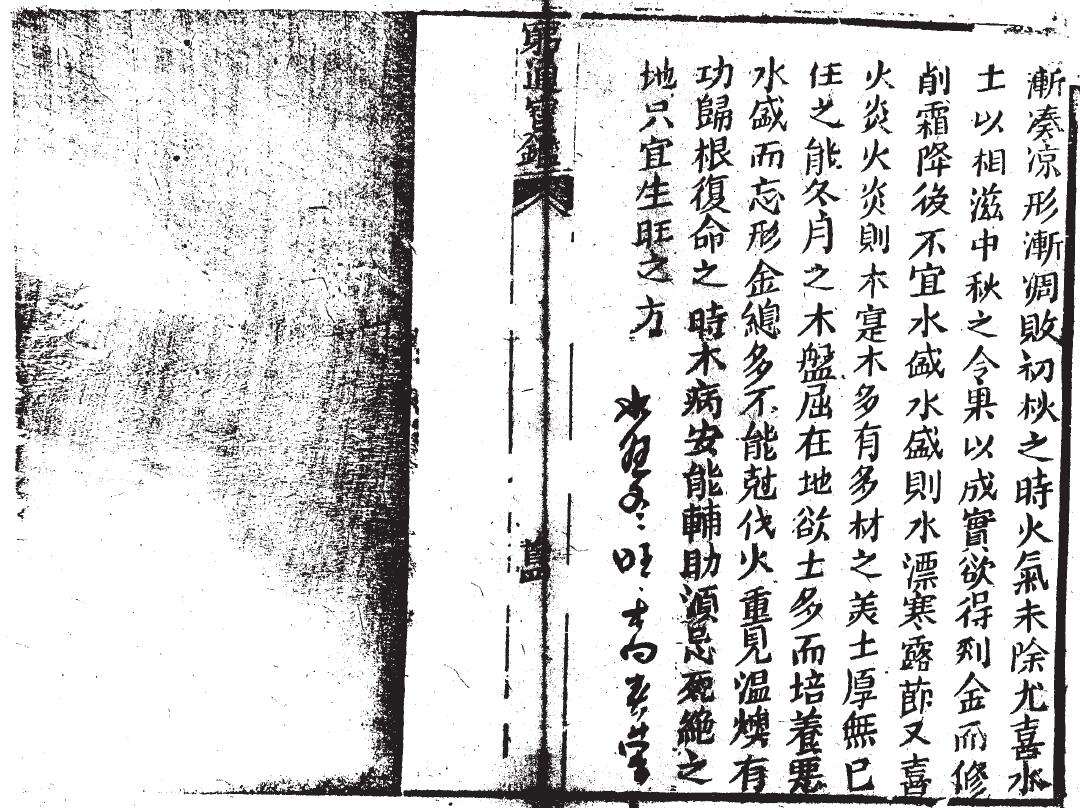 漸凑凉形漸凋敗初秋之時火氣未除尤喜水
土以相滋中秋之令果以成實欲得剛金而修
削霜降後不宜水盛水盛則水漂寒露節又喜
火炎火炎則木寔木多有多材之美土厚無己
任之能冬月之木盤屈在地欲土多而培養惡
水盛而忘形金總多不能尅伐火重見温燠有
功歸根復命之時木病安能輔助須忌死絶之
地只宜生旺之方
窮通寳鑑